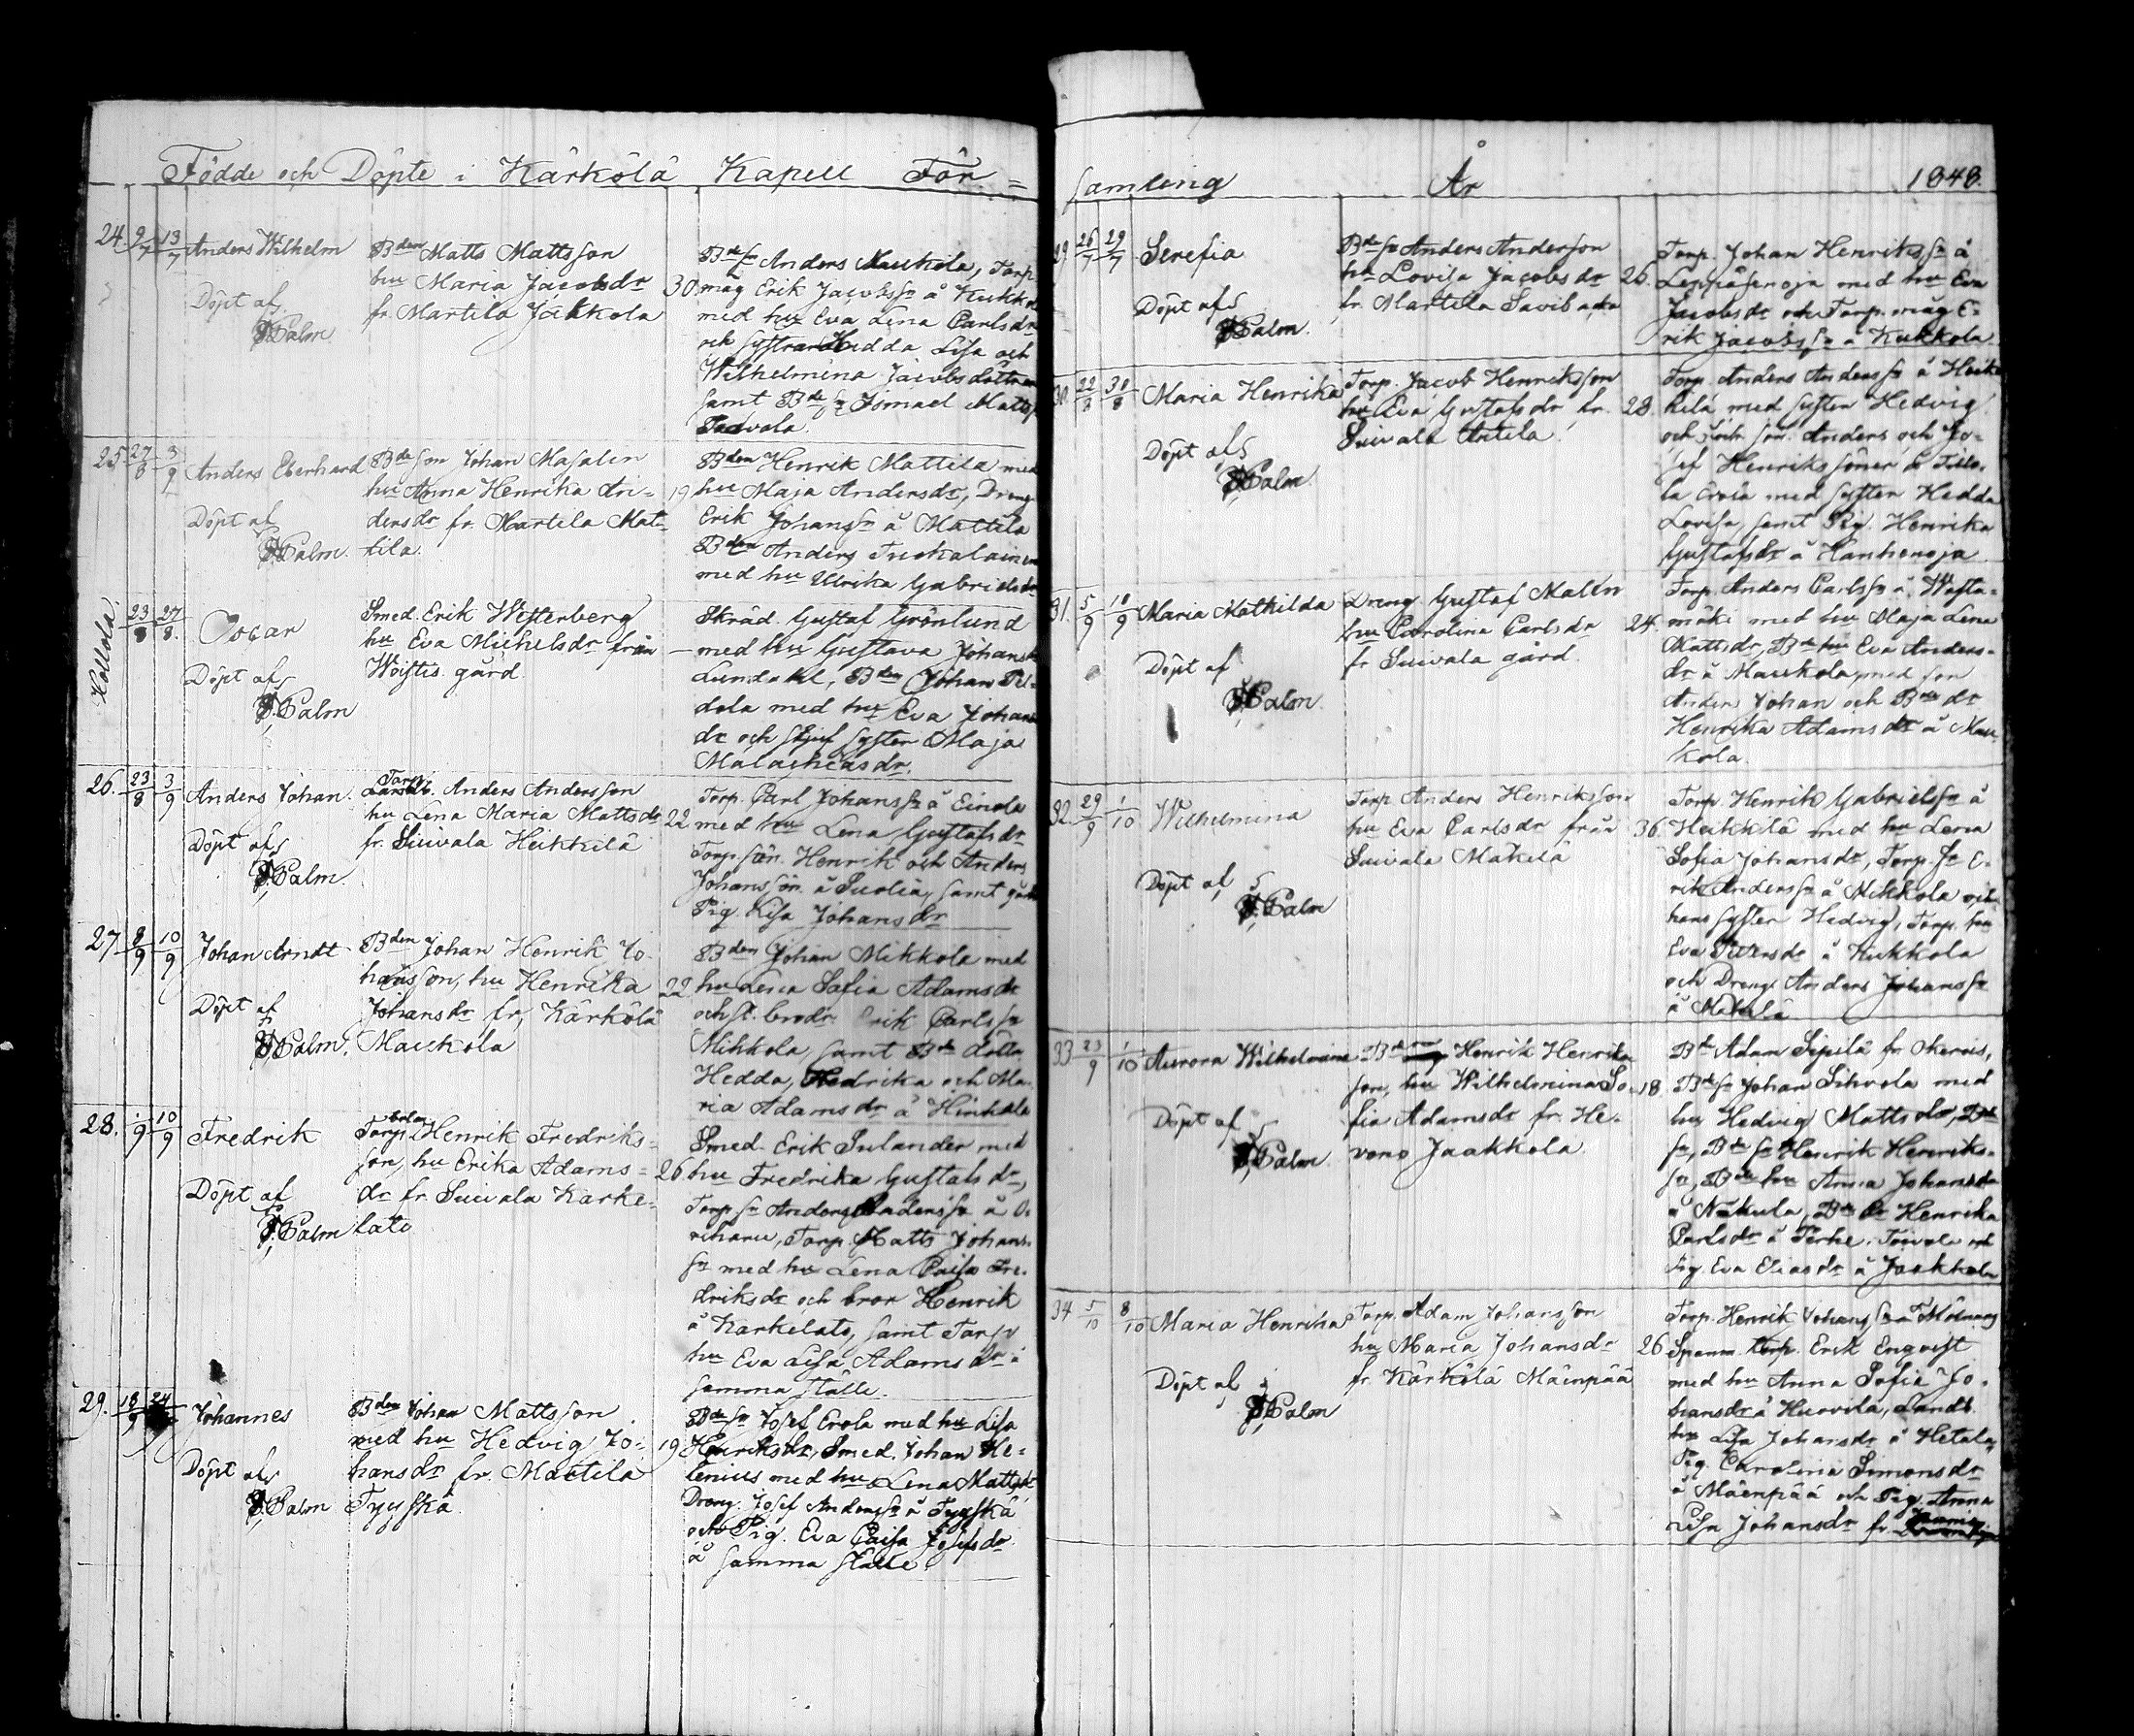 Födde och Döpte i Kärkölä Kapell För=
24. 9/7 13/7 Anders Wilhelm
Döpt af
Palm
Bden Matts Mattsson
hu Maria Jacobsdr
fr. Martila Jakkola
30
Bdesn Anders Maukola, Torp.
måg Erik Jacobssn å Kukkola
med hu Eva Lena Carlsdr
och systrar Hedda Lisa och
Wilhelmina Jacobsdöttrar
samt Bdesn Ismael Mattss.
25 27/8 3/9 Anders Eberhard
Döpt af
Palm.
Bdeson Johan Masalin
hu Anna Henrika An=
dersdr fr. Martela Mat=
tila.
19
Bden Henrik Mattila med
hu Maja Andersdr, Dreng
Erik Johanssn å Mattila
Bden Anders Tuokalainen
med hu Ulrika Gabrielsdr
Hollola. 23/8 27/8. Oscar
Döpt af
Palm
Smed. Erik Westerberg
hu Eva Michelsdr från
Woistis gård
—
Skräd. Gustaf Grönlund
med hu Gustava Johansdr
Bden Johan Pel=
dola med hu Eva Johans
dr och syster Maja
Malachiasdr.
26. 23/8 3/9 Anders Johan.
Döpt af
Palm.
Torp.
Anders Andersson
hu Lena Maria Mattsdr
fr. Suivala Heikkilä
22
Torp. Carl Johanssn å Einola
med hu Lena Gustafsdr
Torp. sön. Henrik och Anders
Johanssön. å Suolia, samt
Pig. Lisa Johansdr
27. 8/9 10/9 Johan Arndt
Döpt af
Palm.
Bden Johan Henrik Jo=
hansson, hu Henrika
Johansdr fr. Kärkölä
Maukola
22
Bden Johan Mikkola med
hu Lena Sofia Adamsdr
och brodr Erik Carlssn
Mikkola, samt Bde dottr
Hedda, Fredrika och Ma=
ria Adamsdr å Hinkala
28. 1/9 10/9 Fredrik
Döpt af
Palm
Torp. Henrik Fredriks=
son, hu Erika Adams=
dr fr. Suivala Karke=
lato
26
Smed. Erik Sulander med
hu Fredrika Gustafsdr,
Torp. sn Anders Anderssn å O=
riharu, Torp. Matts Johans=
sn med hu Lena Caisa Fre=
driksdr och bror Henrik
å Karkelato, samt Torp.
hu Eva Lisa Adamsdr å
samma ställe.
29. 18/9 24/9 Johannes
Döpt af
Palm
Bden Johan Mattsson
med hu Hedvig Jo=
hansdr fr. Maetila
Tyyskä
19
Bdesn Josef Erola med hu Lisa
Henriksdr, Smed. Johan He=
lenius med hu Lena Mattsdr
Dreng. Josef Anderssn å Tyyskä
och Pig. Eva Caisa Josefsdr
å samma ställe
samling År 1848.
29. 26/7 29/7 Serefia
Döpt af
Palm.
Bdesn Anders Anderson
hu Lovisa Jacobsdr
fr. Martela
26.
Torp. Johan Henrikssn å
Leppäsenoja med hu Eva
Jacobsdr och Torp. måg E=
rik Jacobssn å Kukkola
30. 22/8 30/8 Maria Henrika
Döpt af
Palm
Torp. Jacob Henriksson
hu Eva Gustafsdr fr.
Suivala Antila.
28.
Torp. Anders Anderssn å Heik=
kilä med syster Hedvig
och sön. Anders och Jo=
sef Henrikssöner å
med syster Hedda
Lovisa, samt Pig. Henrika
Gustafsdr å Hanhenoja
31. 5/9 10/9 Maria Mathilda
Döpt af
Palm.
Dreng. Gustaf Malin
hu Carolina Carlsdr
fr. Suivala gård.
24.
Torp. Anders Carlssn å
mäki med hu Maja Lena
Mattsdr, Bde hu Eva Anders=
dr å Maukola med son
Anders Johan och Bde dr
Henrika Adamsdr å Mau=
kola.
32. 29/9 1/10 Wilhelmina
Döpt af
Palm
Torp. Anders Henriksson
hu Eva Carlsdr från
Suivala Mäkelä
36.
Torp. Henrik Gabrielssn å
Heikkilä med hu Lena
Sofia Johansdr, Torp. sn E=
rik Anderssn å Mikkola och
hans syster Hedvig, Torp. hu
Eva Petersdr å Kukkola
och Dreng. Anders Johanssn
å Mäkelä.
33 23/9 1/10 Aurora Wilhelmina
Döpt af
Palm.
Bde Henrik Henriks=
son, hu Wilhelmina So=
fia Adamsdr fr. He=
vono Jaakkola.
18.
Bde Adam Sipilä fr. Okerois,
Bdesn Johan Sihvola med
hu Hedvig Mattsdr,
Bdesn Henrik Henriks=
sn, Bde hu Anna Johansdr
å Nokula, Bde dr Henrika
Carlsdr å Toivola och
Pig. Eva Eliasdr å Jaakkola
34 5/10 8/10 Maria Henrika
Döpt af
Palm
Torp. Adam Johansson
hu Maria Johansdr
fr. Kärkölä Mäenpää
26
Torp. Henrik Johanssn
Erik Enqvist
med hu Anna Sofia Jo=
hansdr å Huovila,
hu Lisa Johansdr å Hetala,
Pig. Carolina Simonsdr
å Mäenpää och Pig. Anna
Lisa Johansdr fr.